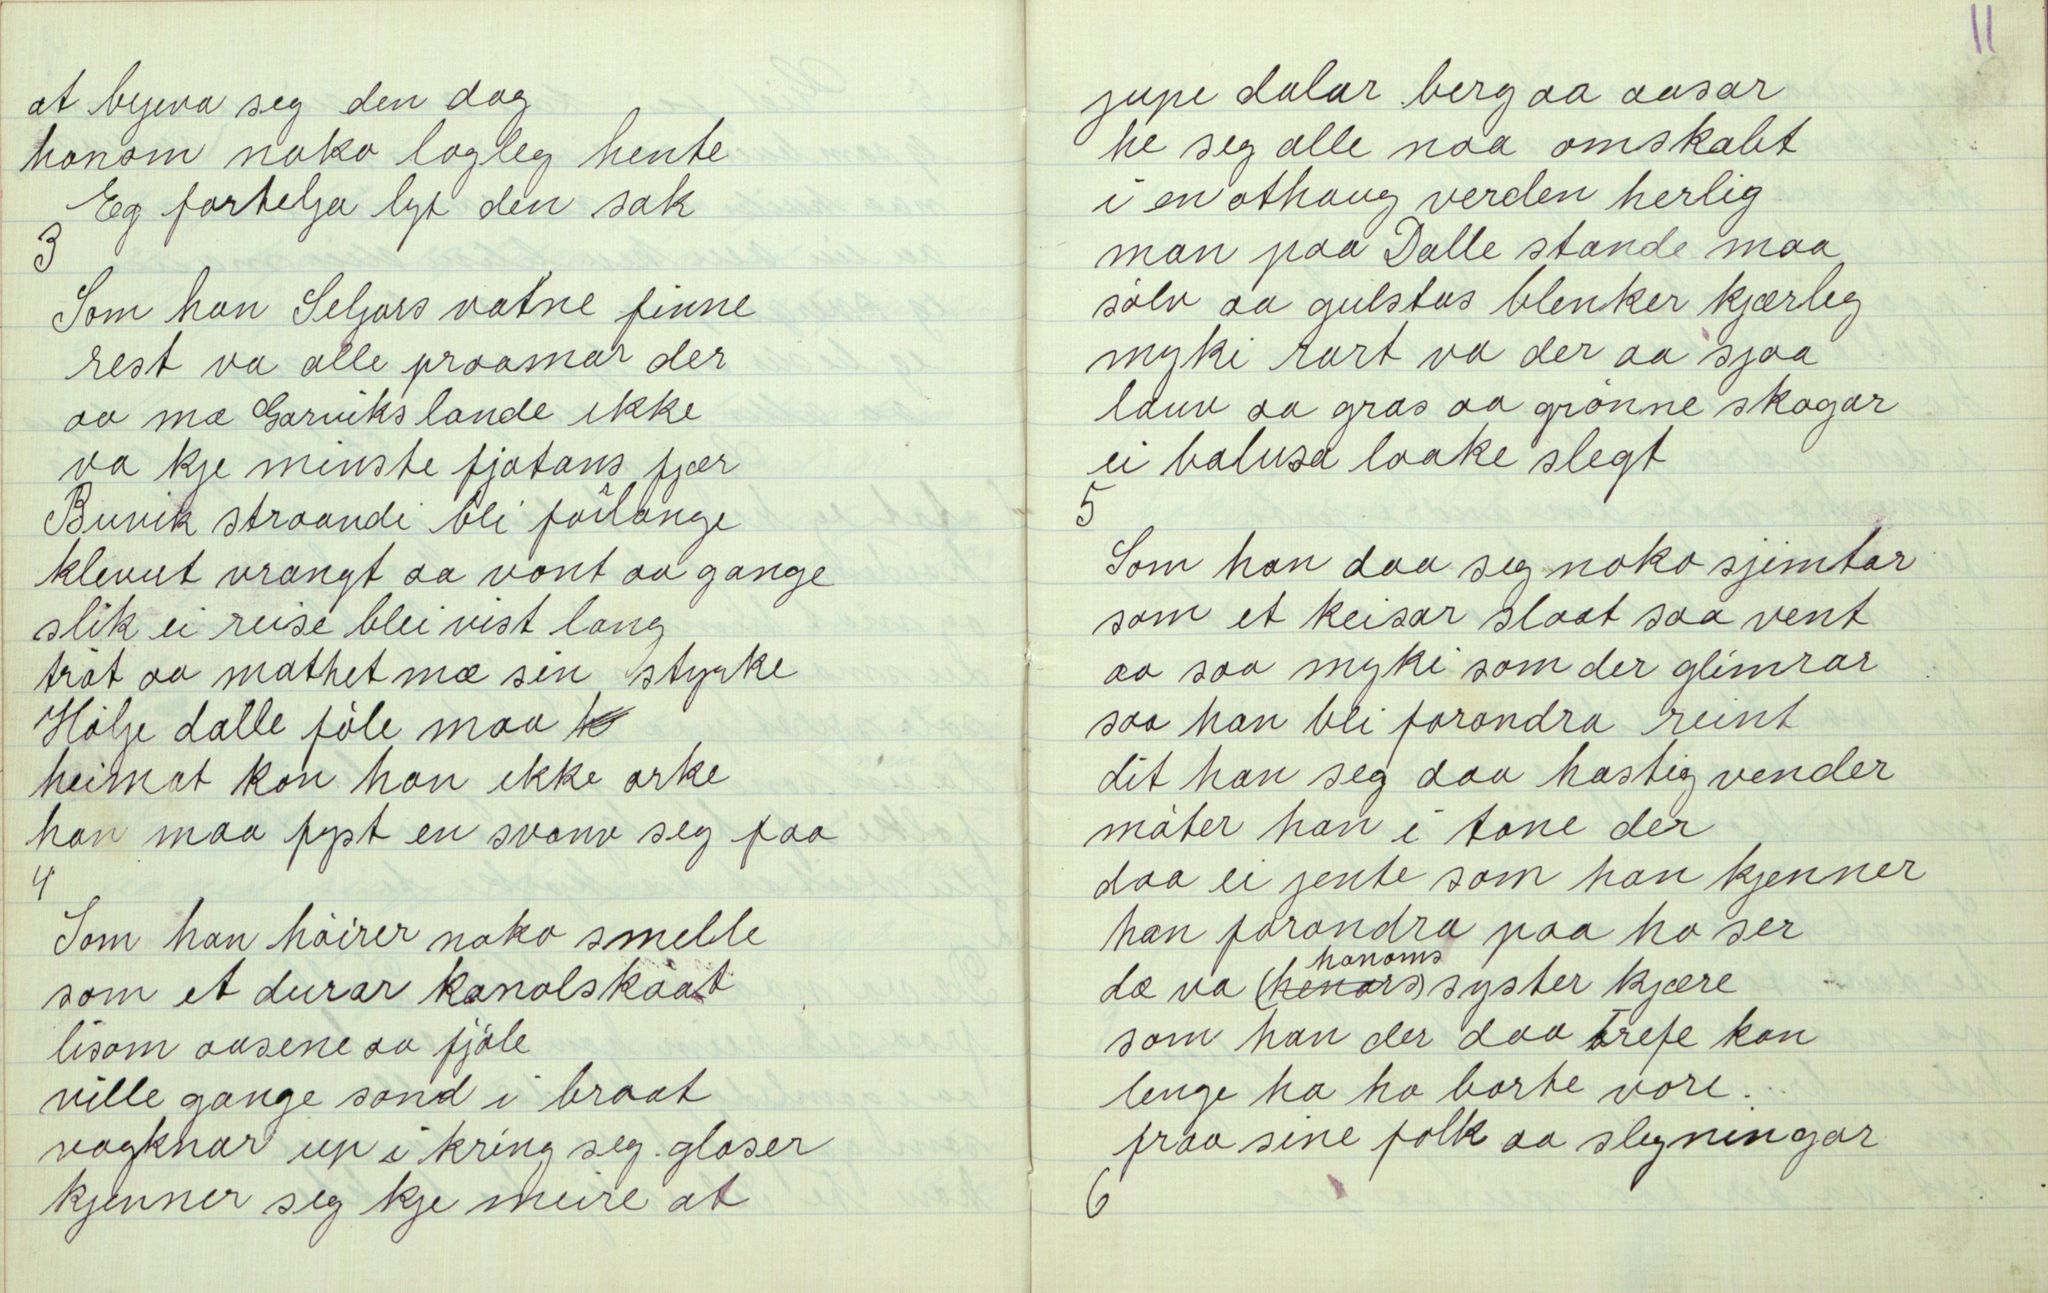 at bejeva seg den dag
honom noko logleg hente
Eg fortelja lyt den sak
3
Som han Seljors vatne finne
rest va alle praamar der
aa mæ Garvikslande ikke
va kje minste fjatans fjær
Buvik straandi bli förlange
klevut vrangt aa vont aa gange
slik ei reise blei vist lang
tröt aa mathet mæ sin styrke
Hölje dalle föle maa
heimat kon han ikke orke
han maa fyst en svavv seg faa
4
Som han höirer noko smelle
som et durar kanolskaat
lisom aasene aa fjöle
ville gange sond i braat
vagknar up i kring seg glaser
kjenner seg kje meire at
11
jupe dalar berg aa aasar
he seg alle naa omskabt
i en othaug verden herlig
man paa Dalle stande maa
sölv aa gulstas blenker kjærleg
myki rart va der aa sjaa
lauv aa gras aa grönne skogar
ei balusa laake slegt
5
Som han daa seg noko sjimtar
som et keisar slaat saa vent
aa saa myki som der glimrar
saa han bli forandra reint
dit han seg daa hastig vender
möter han i tone der
daa ei jente som han kjenner
han forandra paa ho ser
dæ va (henars) honoms syster kjære
som han der daa trefe kan
lenge ha ho borte vore.
fraa sine folk aa slegningar
6